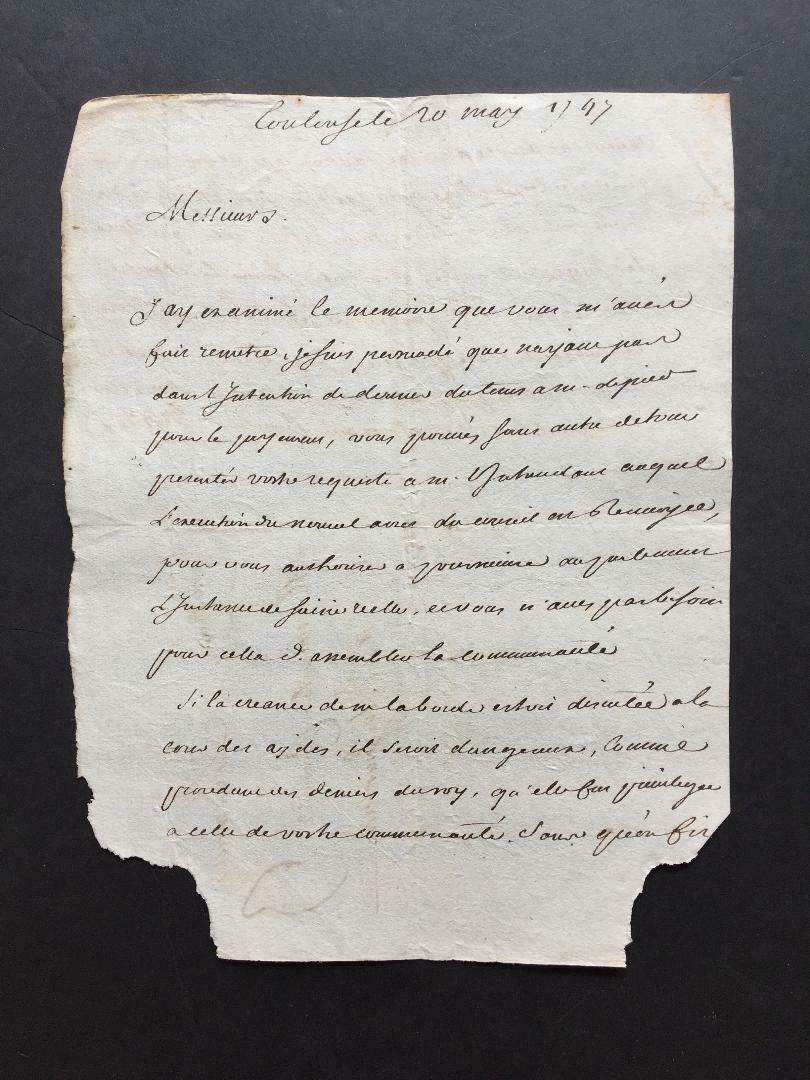 Toulouse le 20 may 1747
Messieurs.
J'ay examiné le memoire que vous m'avés
fait remetre, je suis persuadé que n'ayant pas
dans l'Intention de donner du tems a m. depied
pour le payement, vous pouvés sans autre detour
presenter vostre requeste a m. l'Intendant auquel
L'execution du nouvel arrest du conseil est Renvoyée,
pour vous authoriser a poursuivre au parlement
L'Instance de saisie reelle, et vous n'avés pas besoin
pour cella d'assembler la communauté
Si la creance de m laborde estoit discutée a la
cour des aydes, il seroit dangereux, comme
procedant des deniers du roy, qu'elle fut privilegiée
a celle de vostre communauté. Sans qu'on fit